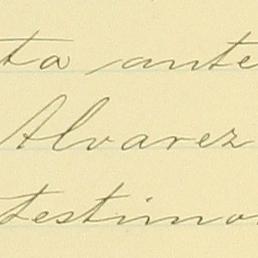 ta ante
Alvarez
testimo